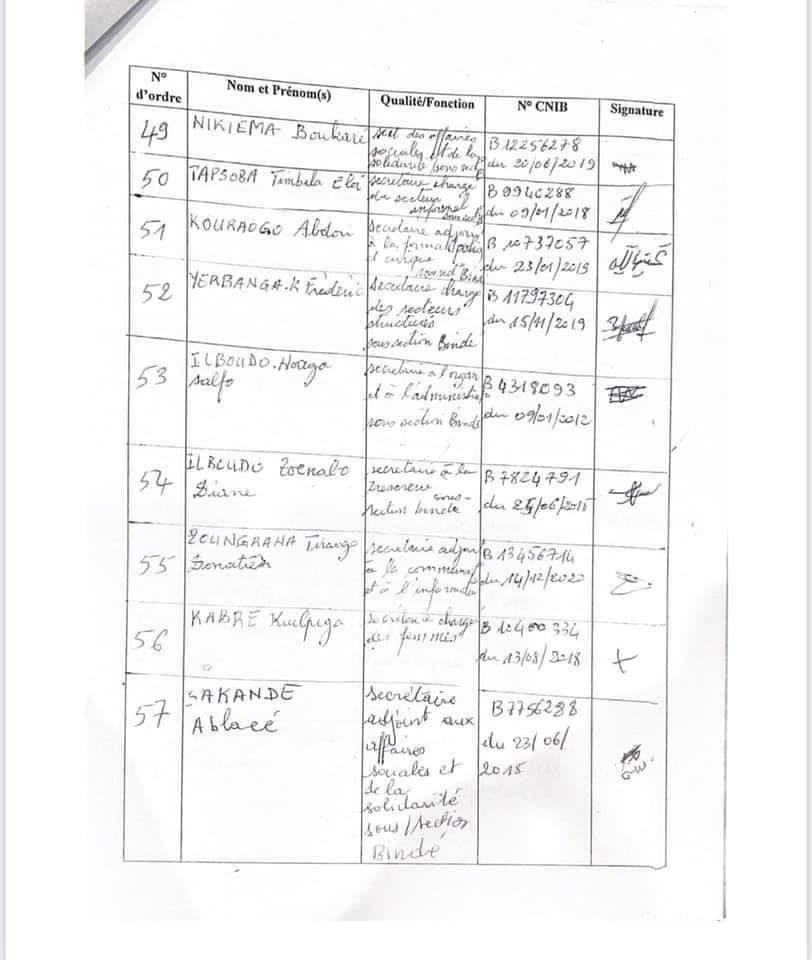 N° d'ordre
Nom et Prénom(s)
Qualité/Fonction
N° CNIB
Signature
49
NIKIEMA Boukaré
des affaires
sociales et de la
solidarité sous sect
B 12256278
du 20/06/2019
50
TAPSOBA Timbila Eloi
secretaire charge
du secteur
informel
B 9940288
du 09/01/2018
51
KOURAOGO Abdou
Secretaire adjoint
à la format politiq
et civique
B 10737057
du 23/01/2019
52
YERBANGA.K Fréderic
Secretaire charge
des secteurs
structurés
sous section Binde
B 11797304
du 15/11/2019
53
ILBOUDO.
Salfo
secretaire a l'organ
et à l'administ
sous section Binde
B 4318093
du 09/01/2012
54
ILBOUDO Zoenabo
Diane
secretaire à la
sous-
section binde
B 7824791
du 25/06/2015
55
ZOUNGRANA
Donatien
secretaire adjoint
à la
et à l'information
B 13456714
du 14/12/2020
56
KABRE Kuilpiga
secrétaire charge
des femmes
B 10400334
du 13/08/2018
57
SAKANDE
Ablacé
secrétaire
adjoint aux
affaires
souales et
de la
solidarité
sous/section
Bindé
B7756288
du 23/06/
2015